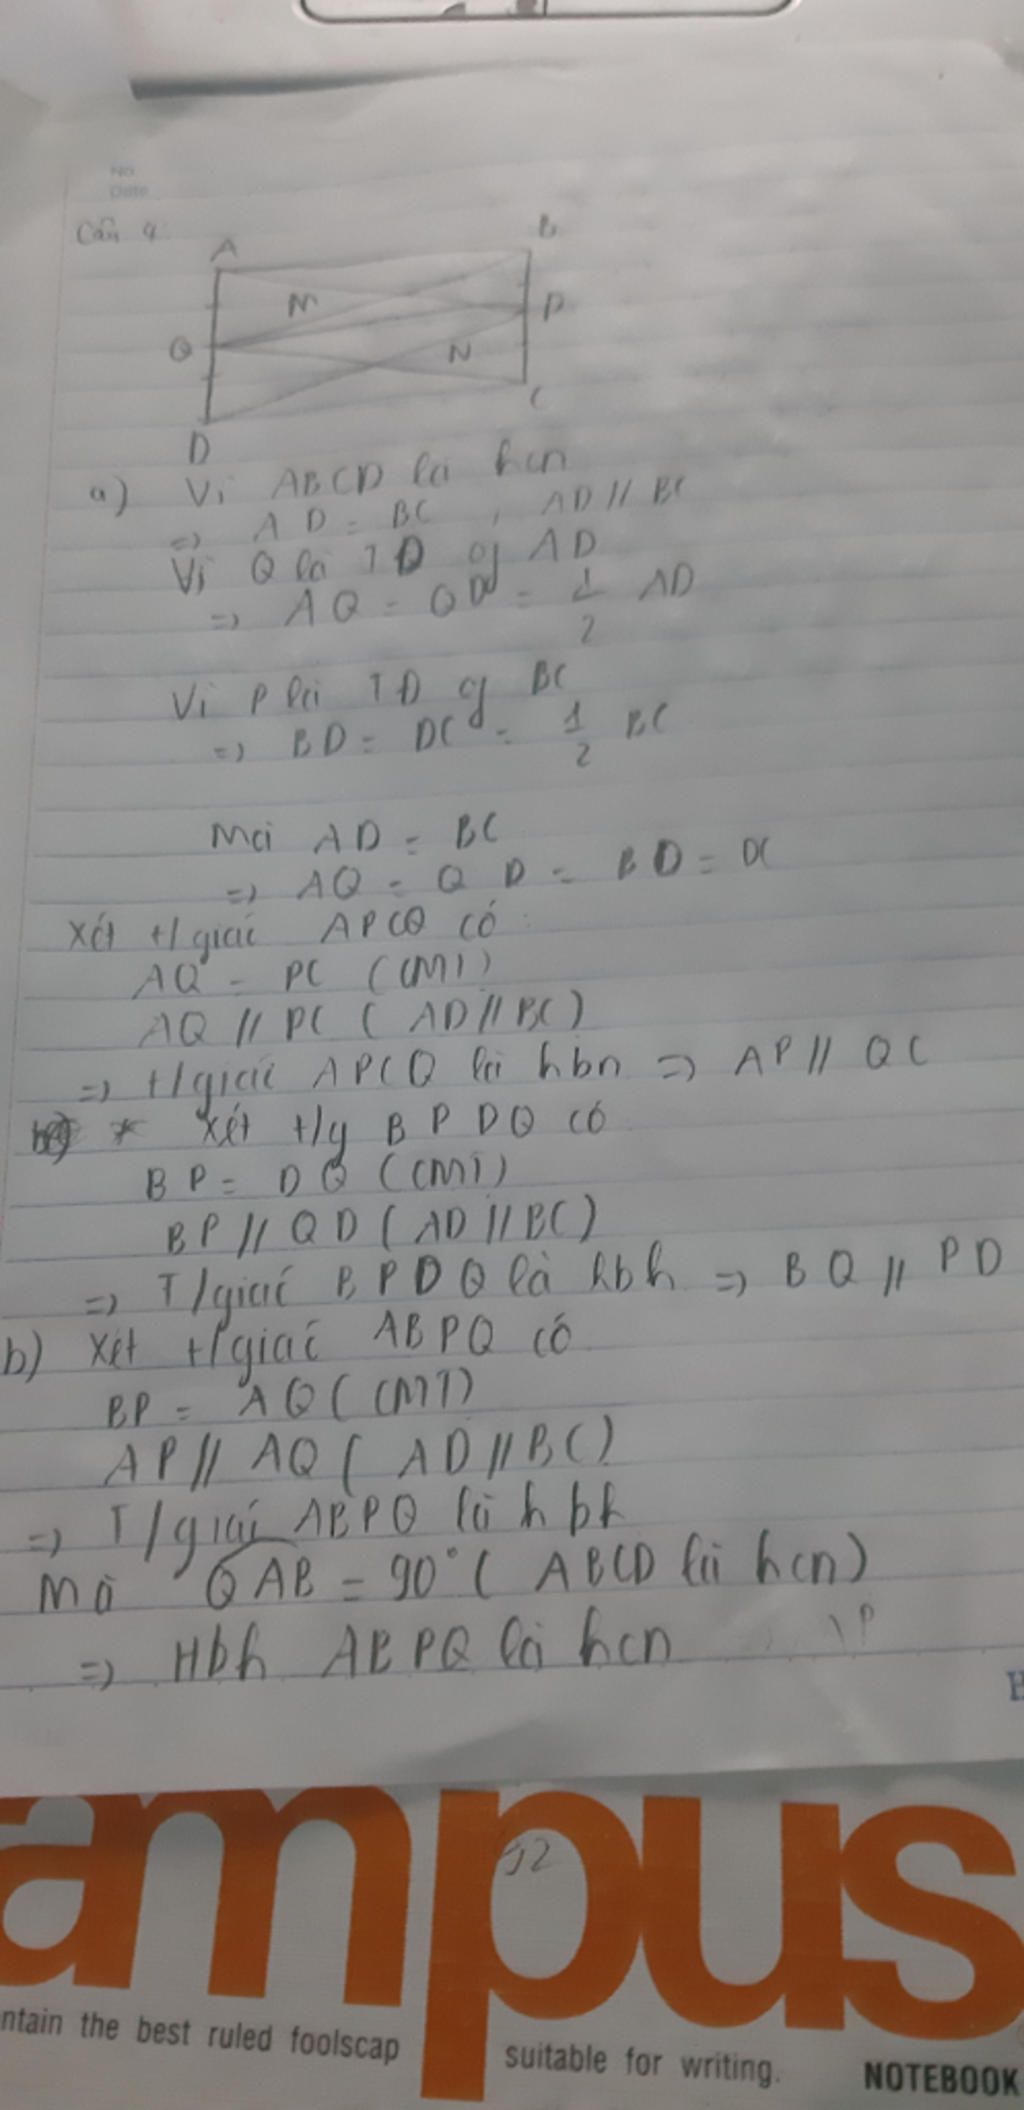 No
Date
Câu 4
A
B
M
P
Q
N
C
D
a) Vì ABCD là hcn
=> AD = BC , AD // BC
Vì Q là TĐ cg AD
=> AQ = QD = 1/2 AD
Vì P là TĐ cg BC
=> BD = DC = 1/2 BC
Mà AD = BC
=> AQ = QD = BD = DC
Xét t/giác APCQ có :
AQ = PC (CMT)
AQ // PC ( AD // BC )
=> t/giác APCQ là hbn => AP // QC
* Xét t/g BPDQ có
BP = DQ (CMT)
BP // QD ( AD // BC )
=> T/giác BPDQ là hbh => BQ // PD
b) Xét t/giác ABPQ có
BP = AQ ( CMT)
AP // AQ ( AD // BC )
=> T/giác ABPQ là hbh
Mà QAB = 90° ( ABCD là hcn )
=> Hbh ABPQ là hcn
ampus
12
ntain the best ruled foolscap
suitable for writing.
NOTEBOOK